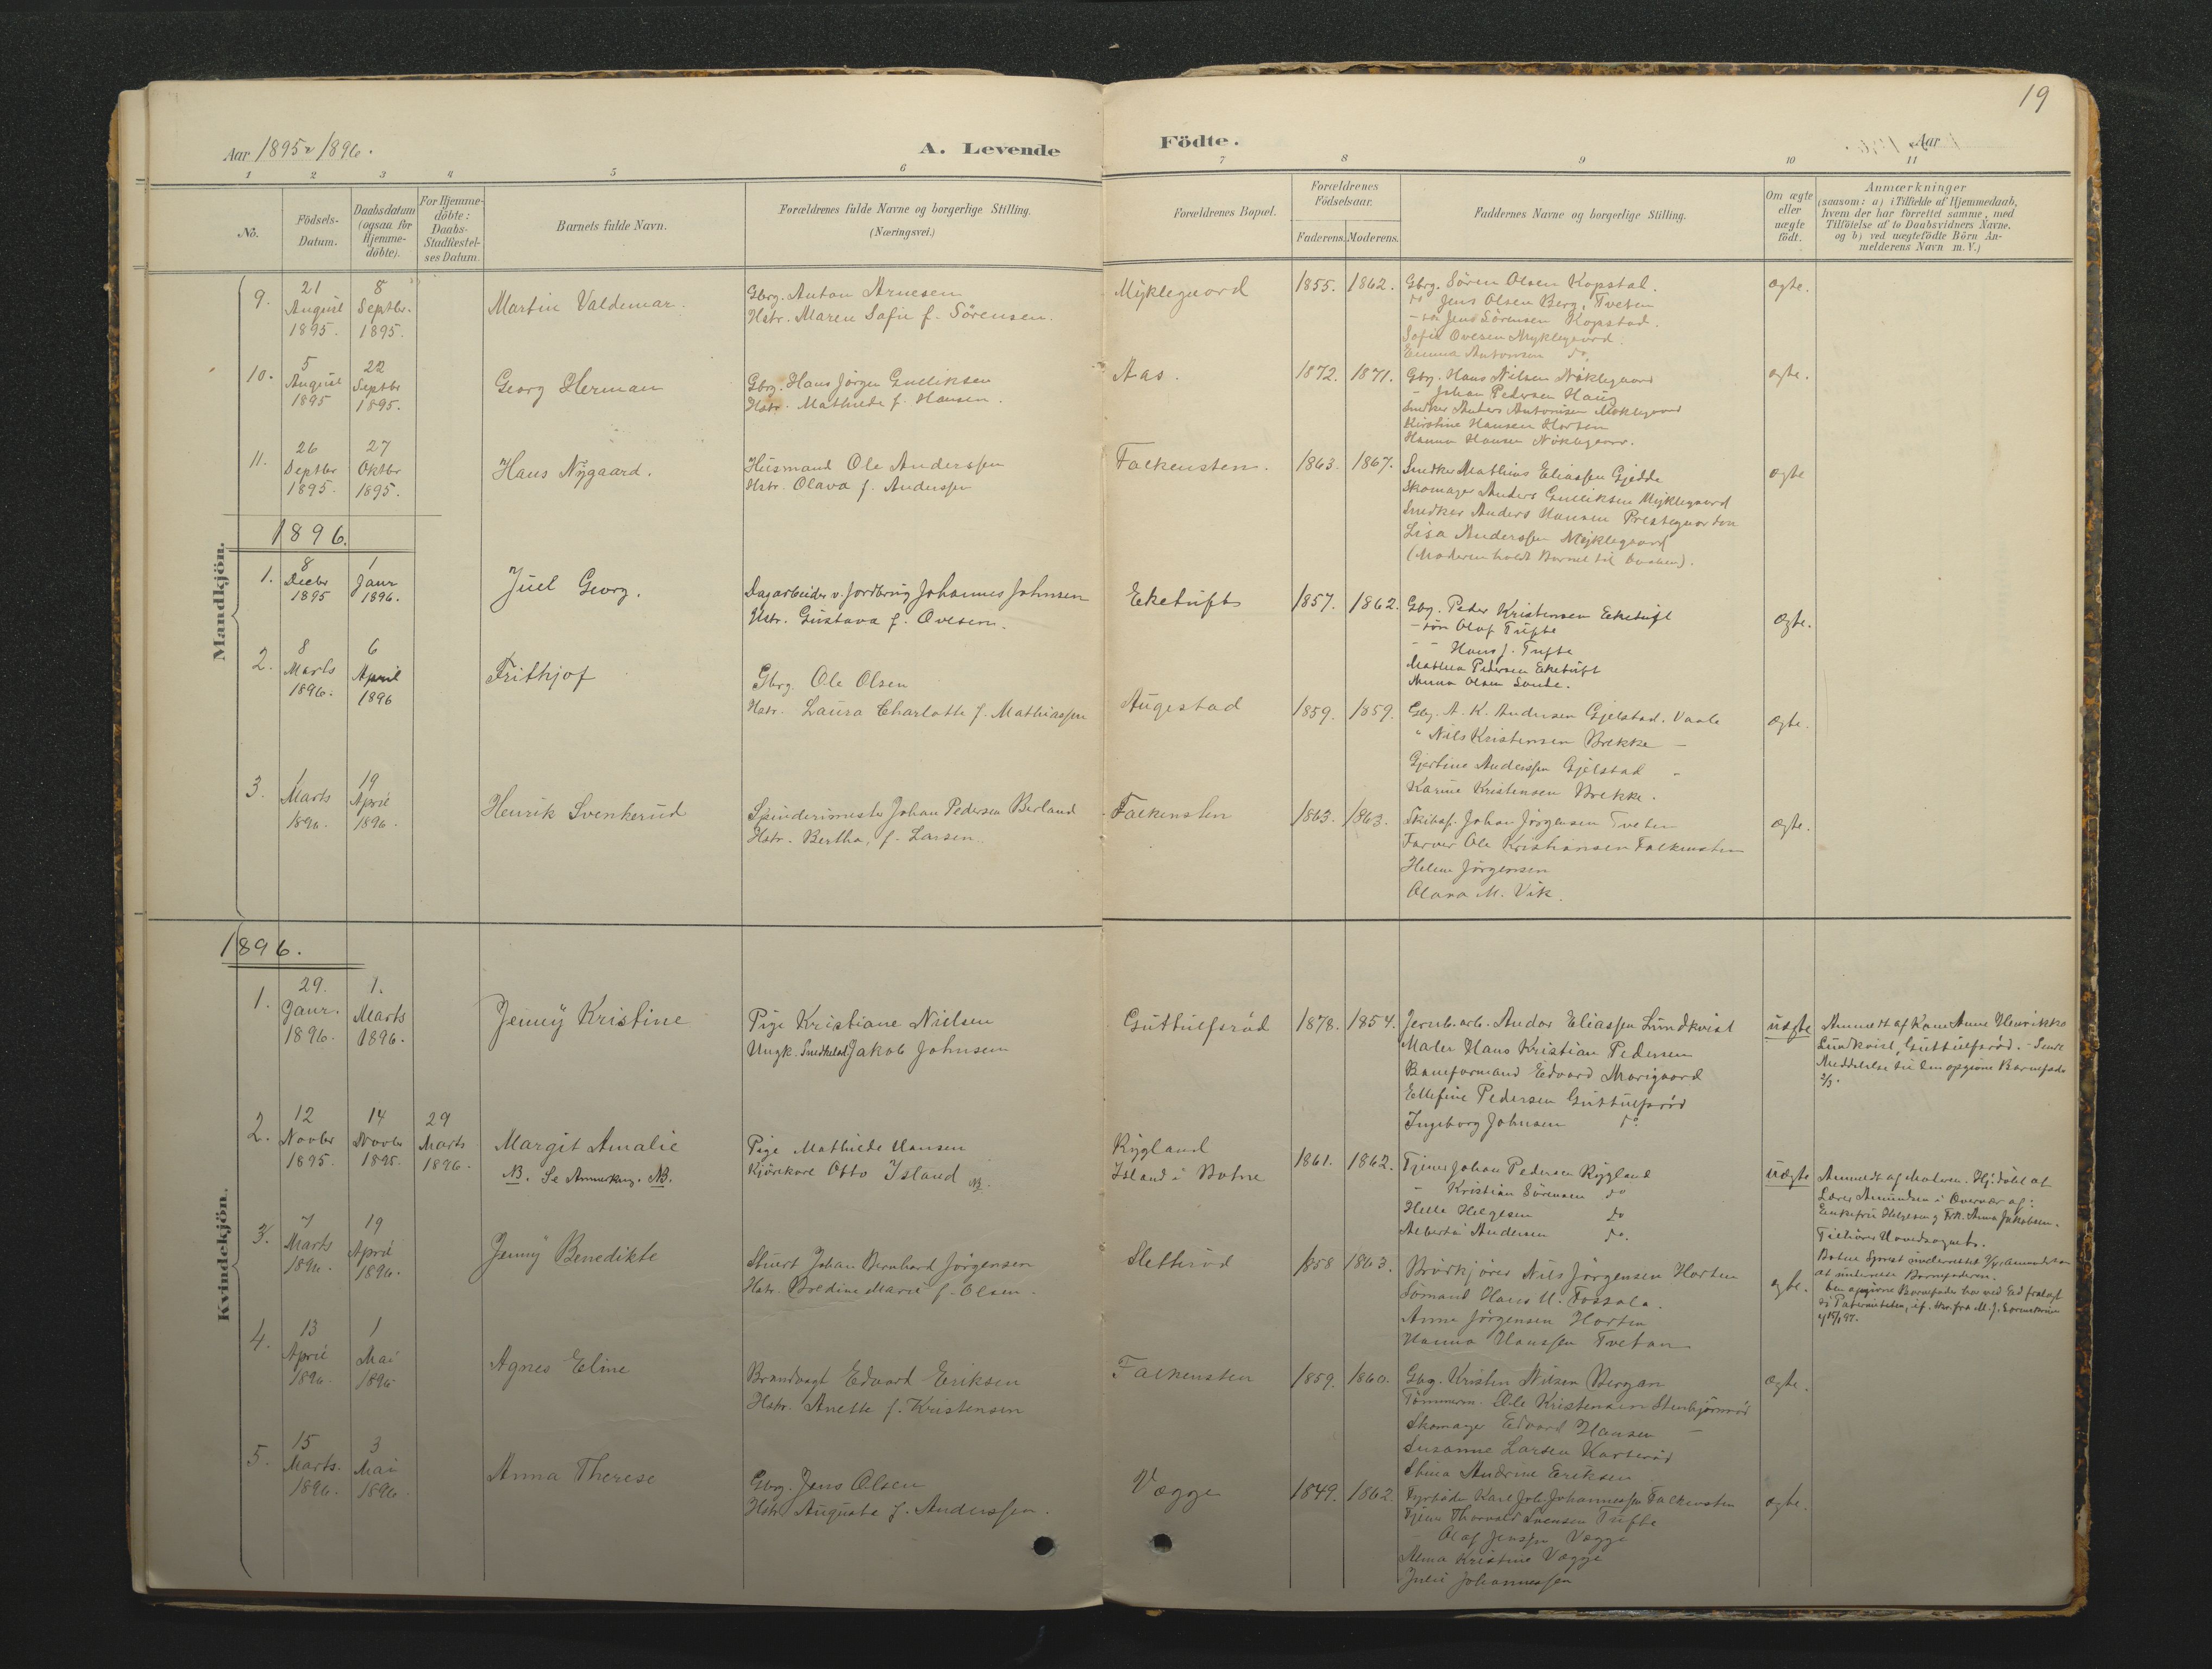 19
Aar 1895 & 1896.
A. Levende
Födte.
Aar
1 2 3 4 5 6 7 8 9 10 11
No.
Födsels-
Datum.
Daabsdatum
(ogsaa for
Hjemme-
döbte).
For Hjemme-
döbte:
Daabs-
Stadfæstel-
ses Datum.
Barnets fulde Navn.
Forældrenes fulde Navne og borgerlige Stilling.
(Næringsvei.)
Forældrenes Bopæl.
Forældrenes
Födselsaar.
Faderens. Moderens.
Faddernes Navne og borgerlige Stilling.
Om ægte
eller
uægte
födt.
Anmærkninger
(saasom: a) i Tilfælde af Hjemmedaab,
hvem der har forrettet samme, med
Tilföielse af to Daabsvidners Navne.
og b) ved uægtefödte Börn An-
melderens Navn m. V.)
Mandkjön.
9.
21
August
1895.
8
Septbr.
1895.
Martin Valdemar.
Gbrg. Anton Arnesen
Hstr. Maren Sofie f. Sörensen.
Myklegaard
1855. 1862.
Gbrg. Sören Olsen Kopstad.
do Jens Olsen Berg, Tveten
Jens Sörensen Kopstad.
Sofie Ovesen Myklegaard.
Emma Antonsen do
ægte.
10.
5
August
1895
22
Septbr
1895.
Georg Herman
Gbrg. Hans Jörgen Gulliksen
Hstr. Mathilde f. Hansen.
Aas.
1872. 1871.
Gbrg. Hans Nilsen Nöklegaard
- Johan Pedersen Haug
Snedker Anders Antonisen Myklegaard
Kirstine Hansen Horten
Hanna Hansen Nöklegaard.
ægte.
11.
26
Septbr
1895.
27
Oktbr
1895.
Hans Nygaard.
Husmand Ole Anderssen
Hstr. Olava f. Anderssen
Falkensten.
1863. 1867.
Snedker Mathias Eliassen Gjedde
Skomager Anders Gulliksen Myklegaard
Snedker Anders Hansen Prestegaarden
Lisa Anderssen Myklegaard
(Moderen holdt Barnet til Daaben).
ægte
1896.
1.
8
Decbr
1895
1
Janr
1896.
Juel Georg.
Dagarbeider v. Jordbrug Johannes Johnsen
Hstr. Gustava f. Ovesen.
Eketuft
1857. 1862.
Gbg. Peder Kristensen Eketuft
- sön Olaf Tufte
- - Hans J. Tufte
Mathea Pedersen Eketuft
Anna Olsen Sande.
ægte.
2.
8
Marts
1896.
6
April
1896
Frithjof
Gbrg. Ole Olsen
Hstr. Laura Charlotte f. Mathiassen
Augestad
1859. 1859.
Gbg. A. K. Andersen Gjelstad. Vaale
" Nils Kristensen Brekke -
Gjertine Anderssen Gjelstad -
Karine Kristensen Brekke.
ægte.
3.
1
Marts
1896.
19
April
1896.
Henrik Svenkerud
Spinderimester Johan Pedersen Berland
Hstr. Bertha, f. Larsen.
Falkensten
1863. 1863.
Skibsf. Johan Jörgensen Tveten
Farver Ole Kristiansen Falkensten
Helene Jörgensen
Olava M. Vik.
ægte.
Kvindekjön.
1896.
1.
29.
Janr.
1896.
1.
Marts
1896.
Jenny Kristine
Pige Kristiane Nielsen
Ungk. Jakob Johnsen
Guttulfsröd
1878. 1854.
Jernb. arb. Andor Eliassen Lundkvist
Maler Hans Kristian Pedersen
Baneformand Edvard Marigaard
Ellefine Pedersen Guttulfsröd
Ingeborg Johnsen do
uægte
Anmeldt af Kone Anne Henrikke
Lundkvist, Guttulfsröd. - Sendt
Meddelelse til den opgivne Barnefader
2/3.
2.
12
Novbr
1895.
14
Novbr
1895.
29
Marts
1896.
Margit Amalie
NB. Se Anmerkng. NB.
Pige Mathilde Hansen
Kjörekarl Otto Island NB.
Rygland
Island i Botne
1861. 1862.
Tjener Johan Pedersen Rygland
- Kristian Sörensen do
Helle Helgesen do
Alberta Andersen do.
uægte
Anmeldt af Moderen. Hj. döbt af
Lærer Amundsen i Overvær af:
Enkefru Helgesen og Frk. Anna Jakobsen.
Tilhörer Hovedsognet.
Botne Sprest underrettet
at underrette Barnefaderen.
Den opgivne Barnefader har ved Ed fralagt
sig Paterniteten,
3.
7
Marts
1896.
19
April
1896.
Jenny Benedikte
Stuert Johan Bernhard Jörgensen
Hstr. Bredine Marie f. Olsen.
Sletteröd
1858 1863.
Nils Jörgensen Horten
Sömand Hans U. Fossala.
Anna Jörgensen Horten
Hanna Hanssen Tvetan
ægte.
4.
13
April
1896.
1
Mai
1896
Agnes Eline
Brandvagt Edvard Eriksen
Hstr. Anette f. Kristensen
Falkensten
1859. 1860.
Gbg. Kristen Nilsen Bergan
Tömmerm. Ole Kristensen Stenbjörnröd
Skomager Edvard Hansen -
Susanne Larsen Karteröd
Stina Andrine Eriksen
ægte.
5.
15
Marts.
1896.
3
Mai
1896.
Anna Therese
Gbrg. Jens Olsen
Hstr. Augusta f. Anderssen.
Vægge
1849. 1862.
Fyrböder Karl Joh. Johannessen Falkensten
Tjener Thorvald Svensen Tufte
- Olaf Jenssen Vægge
Alma Kristine Vægge
Julie Johannessen
ægte.